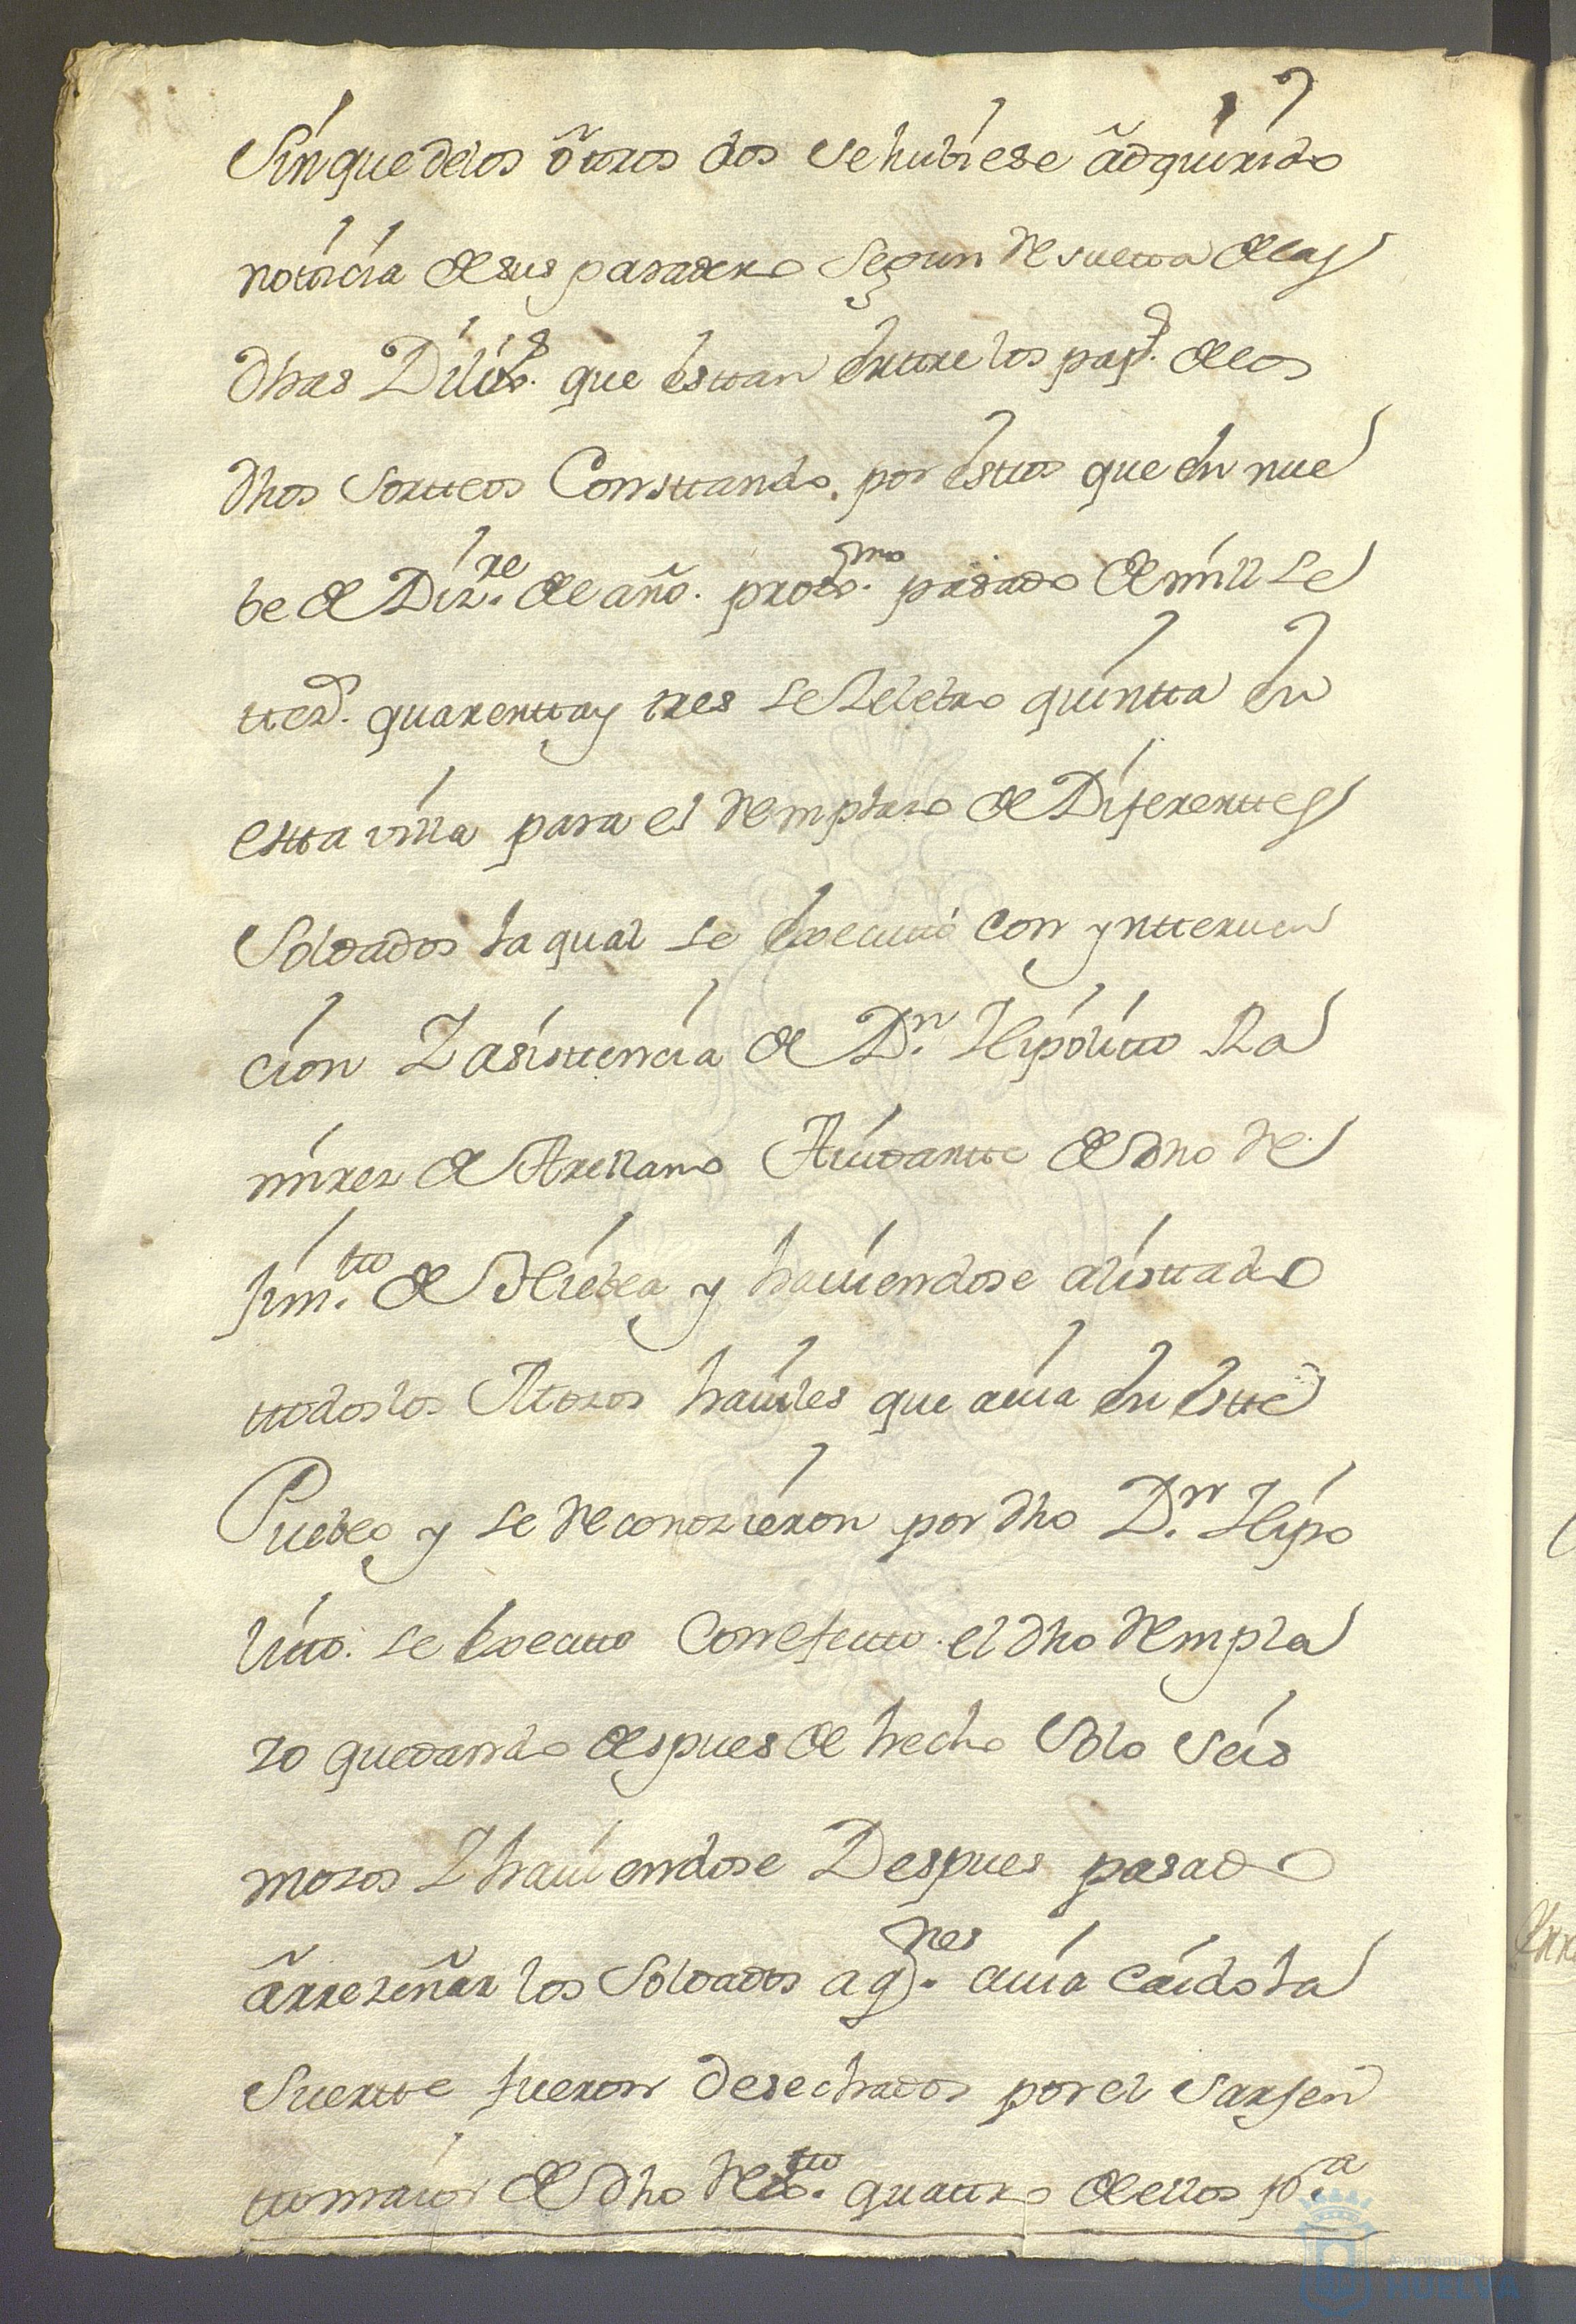 Sin que de los otros dos se hubiese adquirido
notticia de sus paradero segun Resultta de las
dhas Dilixs. que esttan enttre los paps. de los
dhos Sortteos Consttando por esttos que en nue
be de Dizre. de el año. proxmo. pasado de mill se
ttezs. quarentta y tres se Zelebro quintta en
estta villa para el Remplazo de Diferenttes
Soldados la qual se executtó con yntterven
cion Y asisttencia de Dn. Hipolitto Ra
mirez de Arellano Aiudantte de dho Re
ximtto. de Niebla y haviendose alisttado
ttodos los Mozos haviles que avia en estte
Pueblo y se Reconozieron por dho Dn. Hipo
litto. se executto Con efectto. el dho Rempla
zo quedando despues de hecho Solo Seis
mozos Y haviendose Despues pasado
a rrezeñar los Soldados a qnes. avia caido la
Suertte fueron desechados por el Sarjen
tto maior de dho Rextto. quattro de ellos pa.
Ayuntamiento
HUELVA